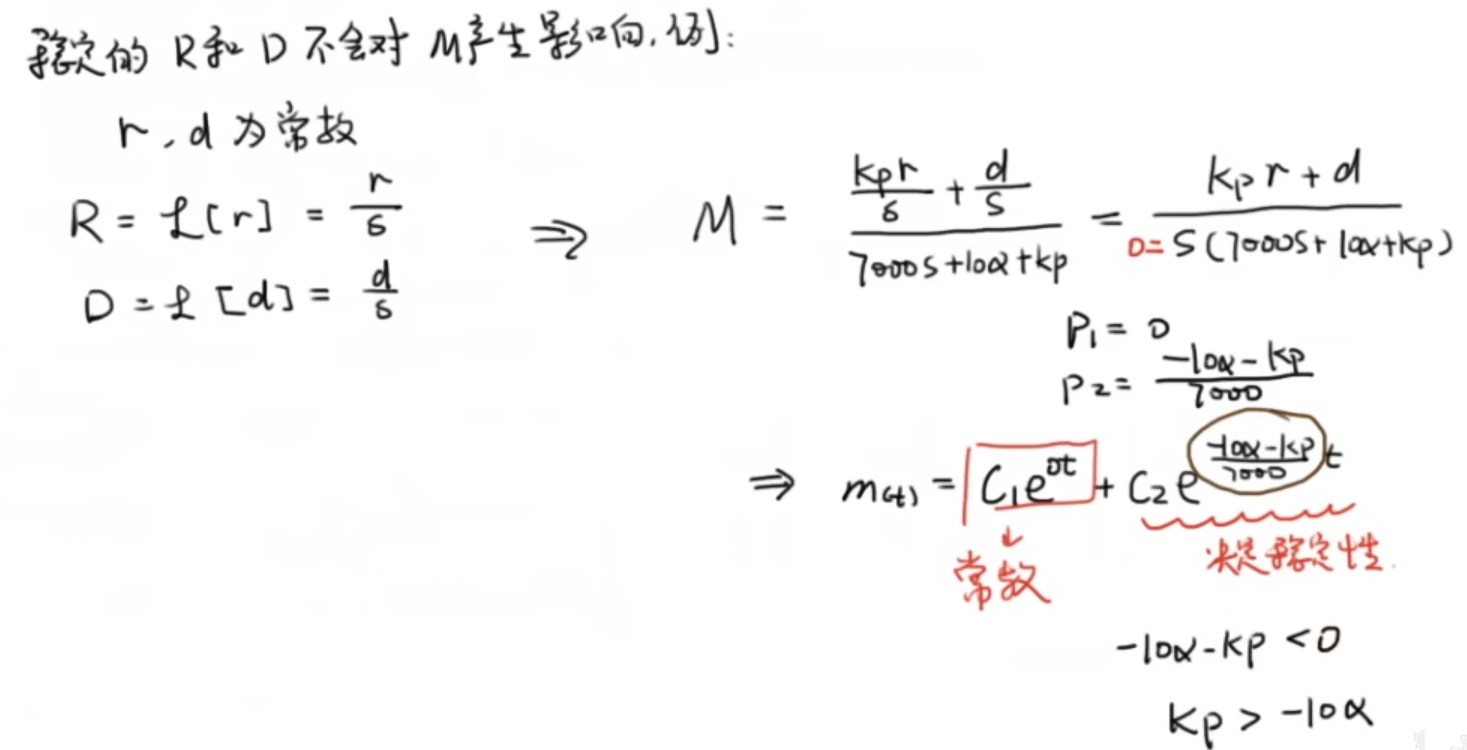 稳定的 R和 D 不会对 M产生影响,例:
r,d 为常数
R = ℒ[r] = r/s
D = ℒ[d] = d/s
⇒ M = (kpr/s + d/s)/(7000s+10α+kp) = (kpr+d)/(s(7000s+10α+kp))
0=
P1 = 0
P2 = (-10α-kp)/7000
⇒ m(t) = C1e^0t + C2e^((-10α-kp)/7000)t
↓
常数
决定稳定性.
-10α-kp < 0
kp > -10α